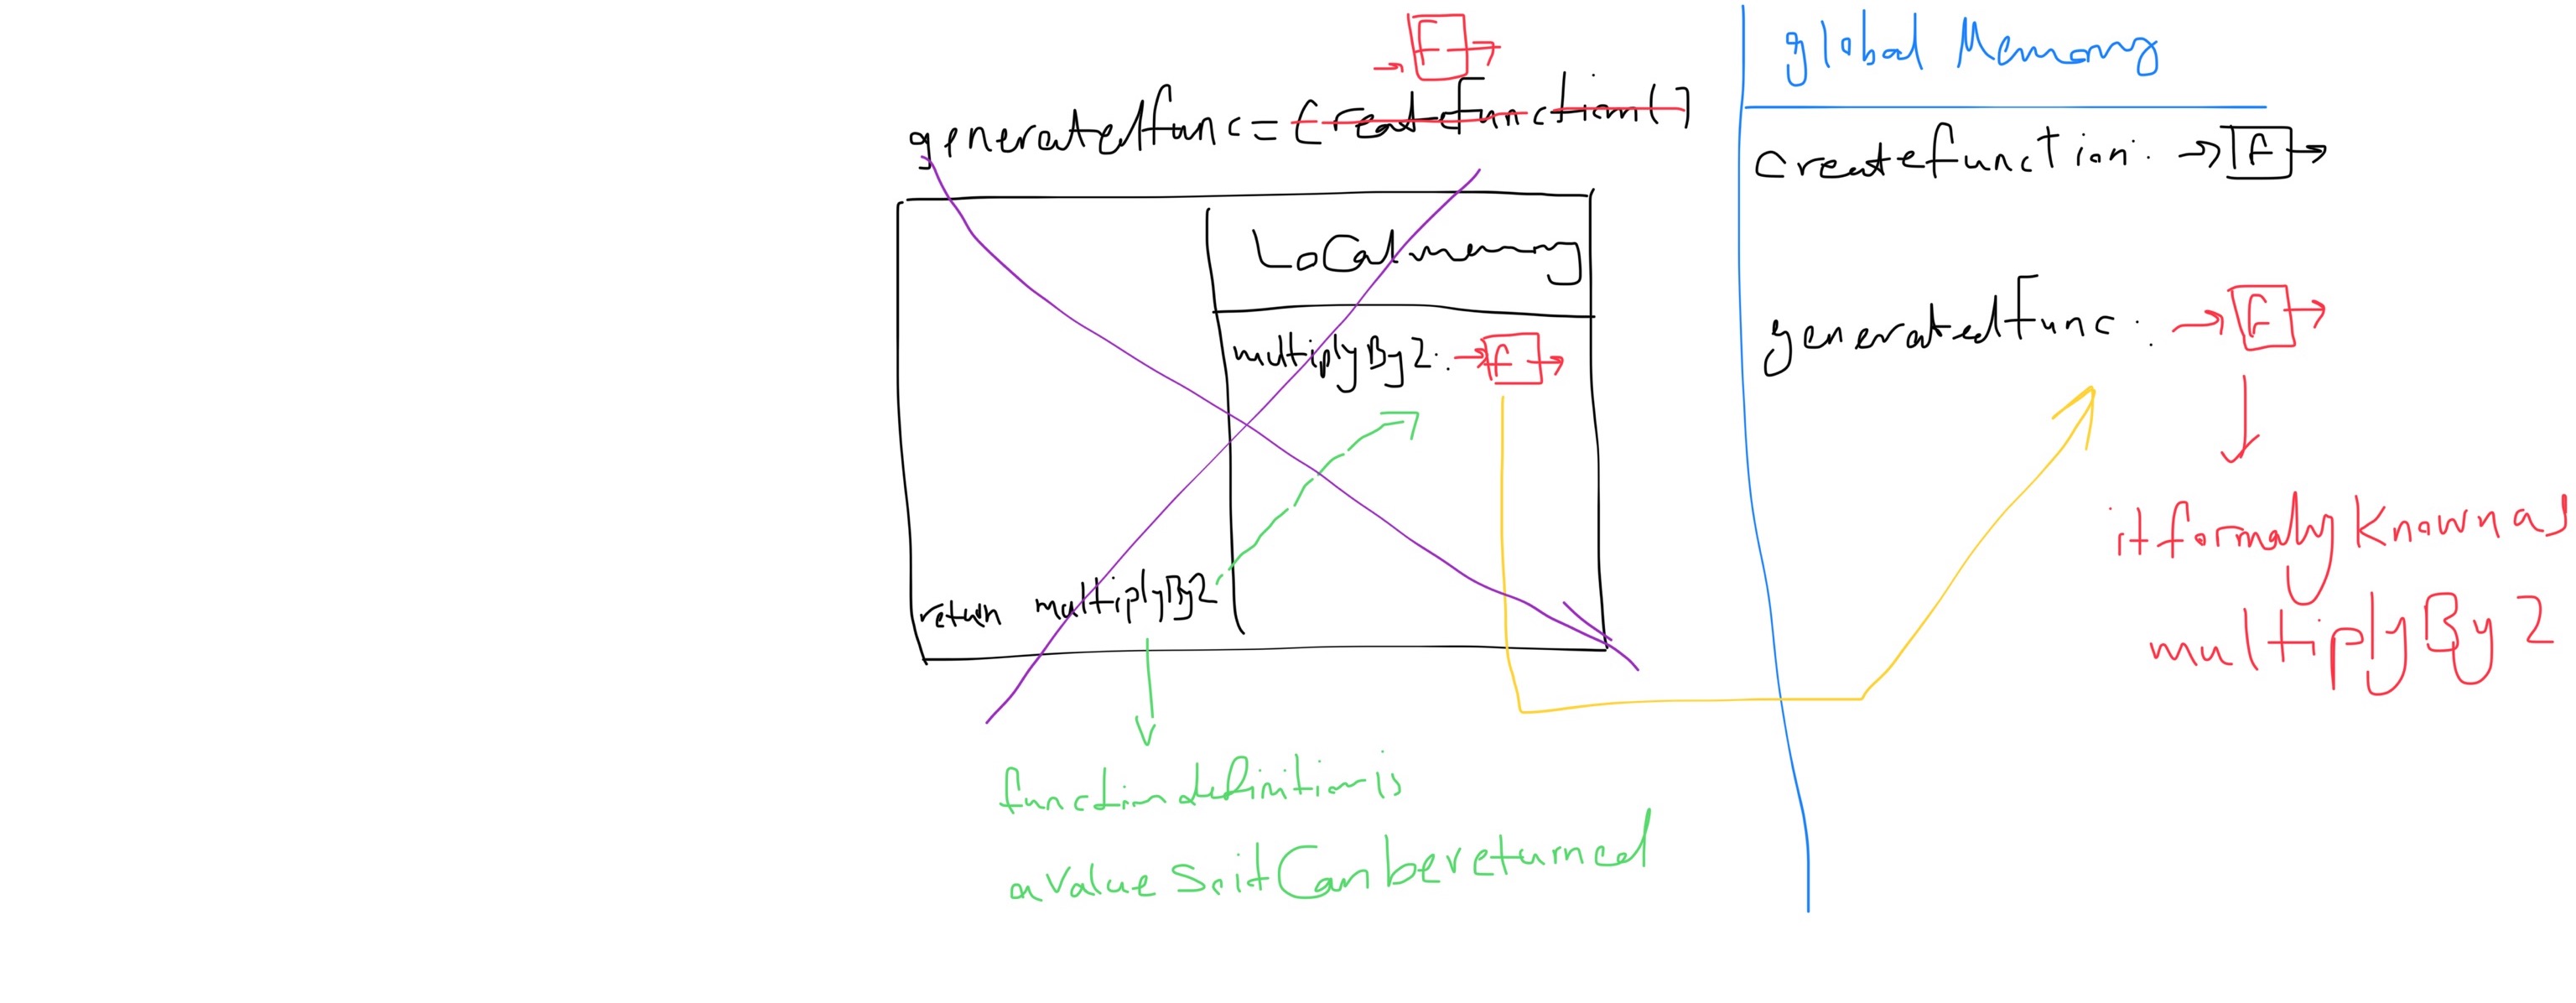 F
generatedfunc = Createfunction()
Local memory
multiplyBy2: f
return multiplyBy2
function definition is
a Value So it Can be returned
global Memory
Createfunction: f
generatedfunc: f
it formaly Known as
multiplyBy2